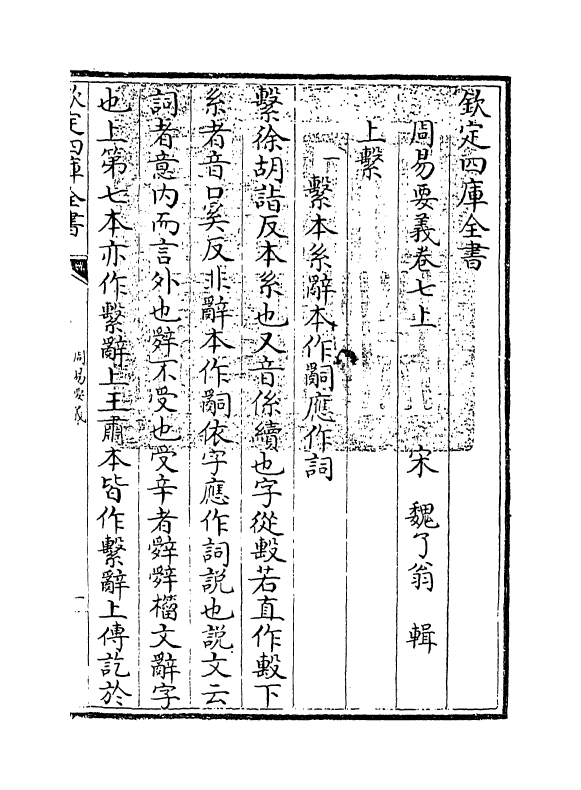 欽定四庫全書
周易要義卷七上
宋 魏了翁 輯
上繫
一 繫本系辭本作嗣應作詞
繫徐胡詣反本系也又音係續也字從毄若直作毄下
系者音口奚反非辭本作嗣依字應作詞説也説文云
詞者意内而言外也辤不受也受辛者辤辤籀文辭字
也上第七本亦作繫辭上王肅本皆作繫辭上傳訖於
欽定四庫全書
周易要義
一